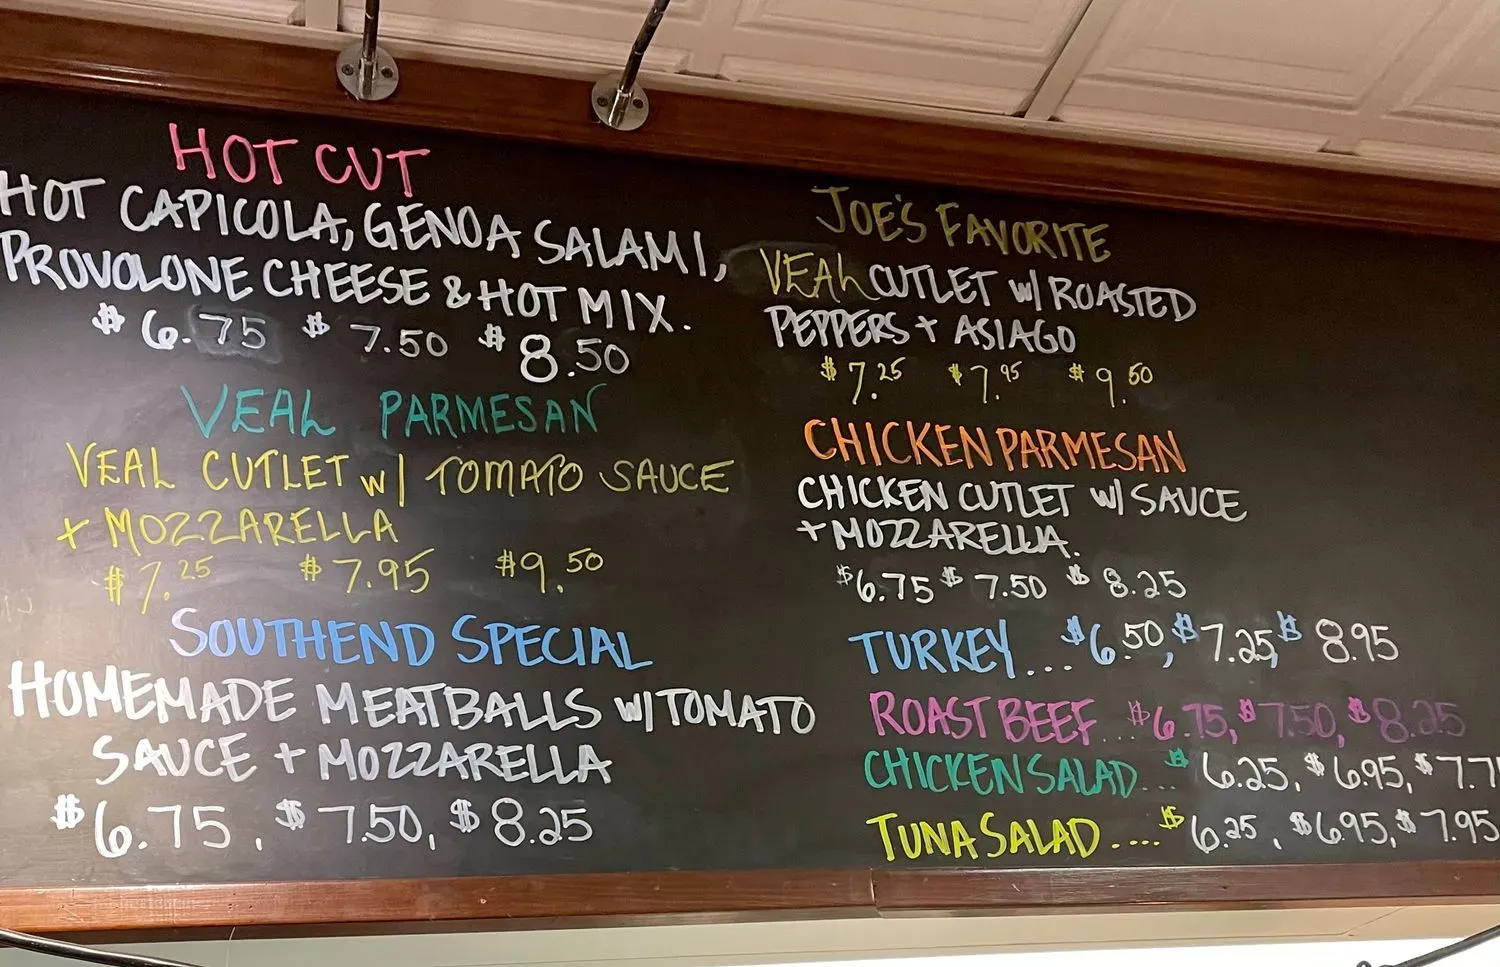 HOT CUT
HOT CAPICOLA, GENOA SALAMI,
PROVOLONE CHEESE & HOT MIX.
$6.75 $7.50 $8.50
VEAL PARMESAN
VEAL CUTLET w/ TOMATO SAUCE
+ MOZZARELLA
$7.25 $7.95 $9.50
SOUTHEND SPECIAL
HOMEMADE MEATBALLS W/TOMATO
SAUCE + MOZZARELLA
$6.75, $7.50, $8.25
JOE'S FAVORITE
VEAL CUTLET w/ ROASTED
PEPPERS + ASIAGO
$7.25 $7.95 $9.50
CHICKEN PARMESAN
CHICKEN CUTLET W/ SAUCE
+ MOZZARELLA.
$6.75 $7.50 $8.25
TURKEY... $6.50, $7.25, $8.95
ROAST BEEF... $6.75, $7.50, $8.25
CHICKEN SALAD... $6.25, $6.95, $7.7
TUNA SALAD.... $6.25, $6.95, $7.95